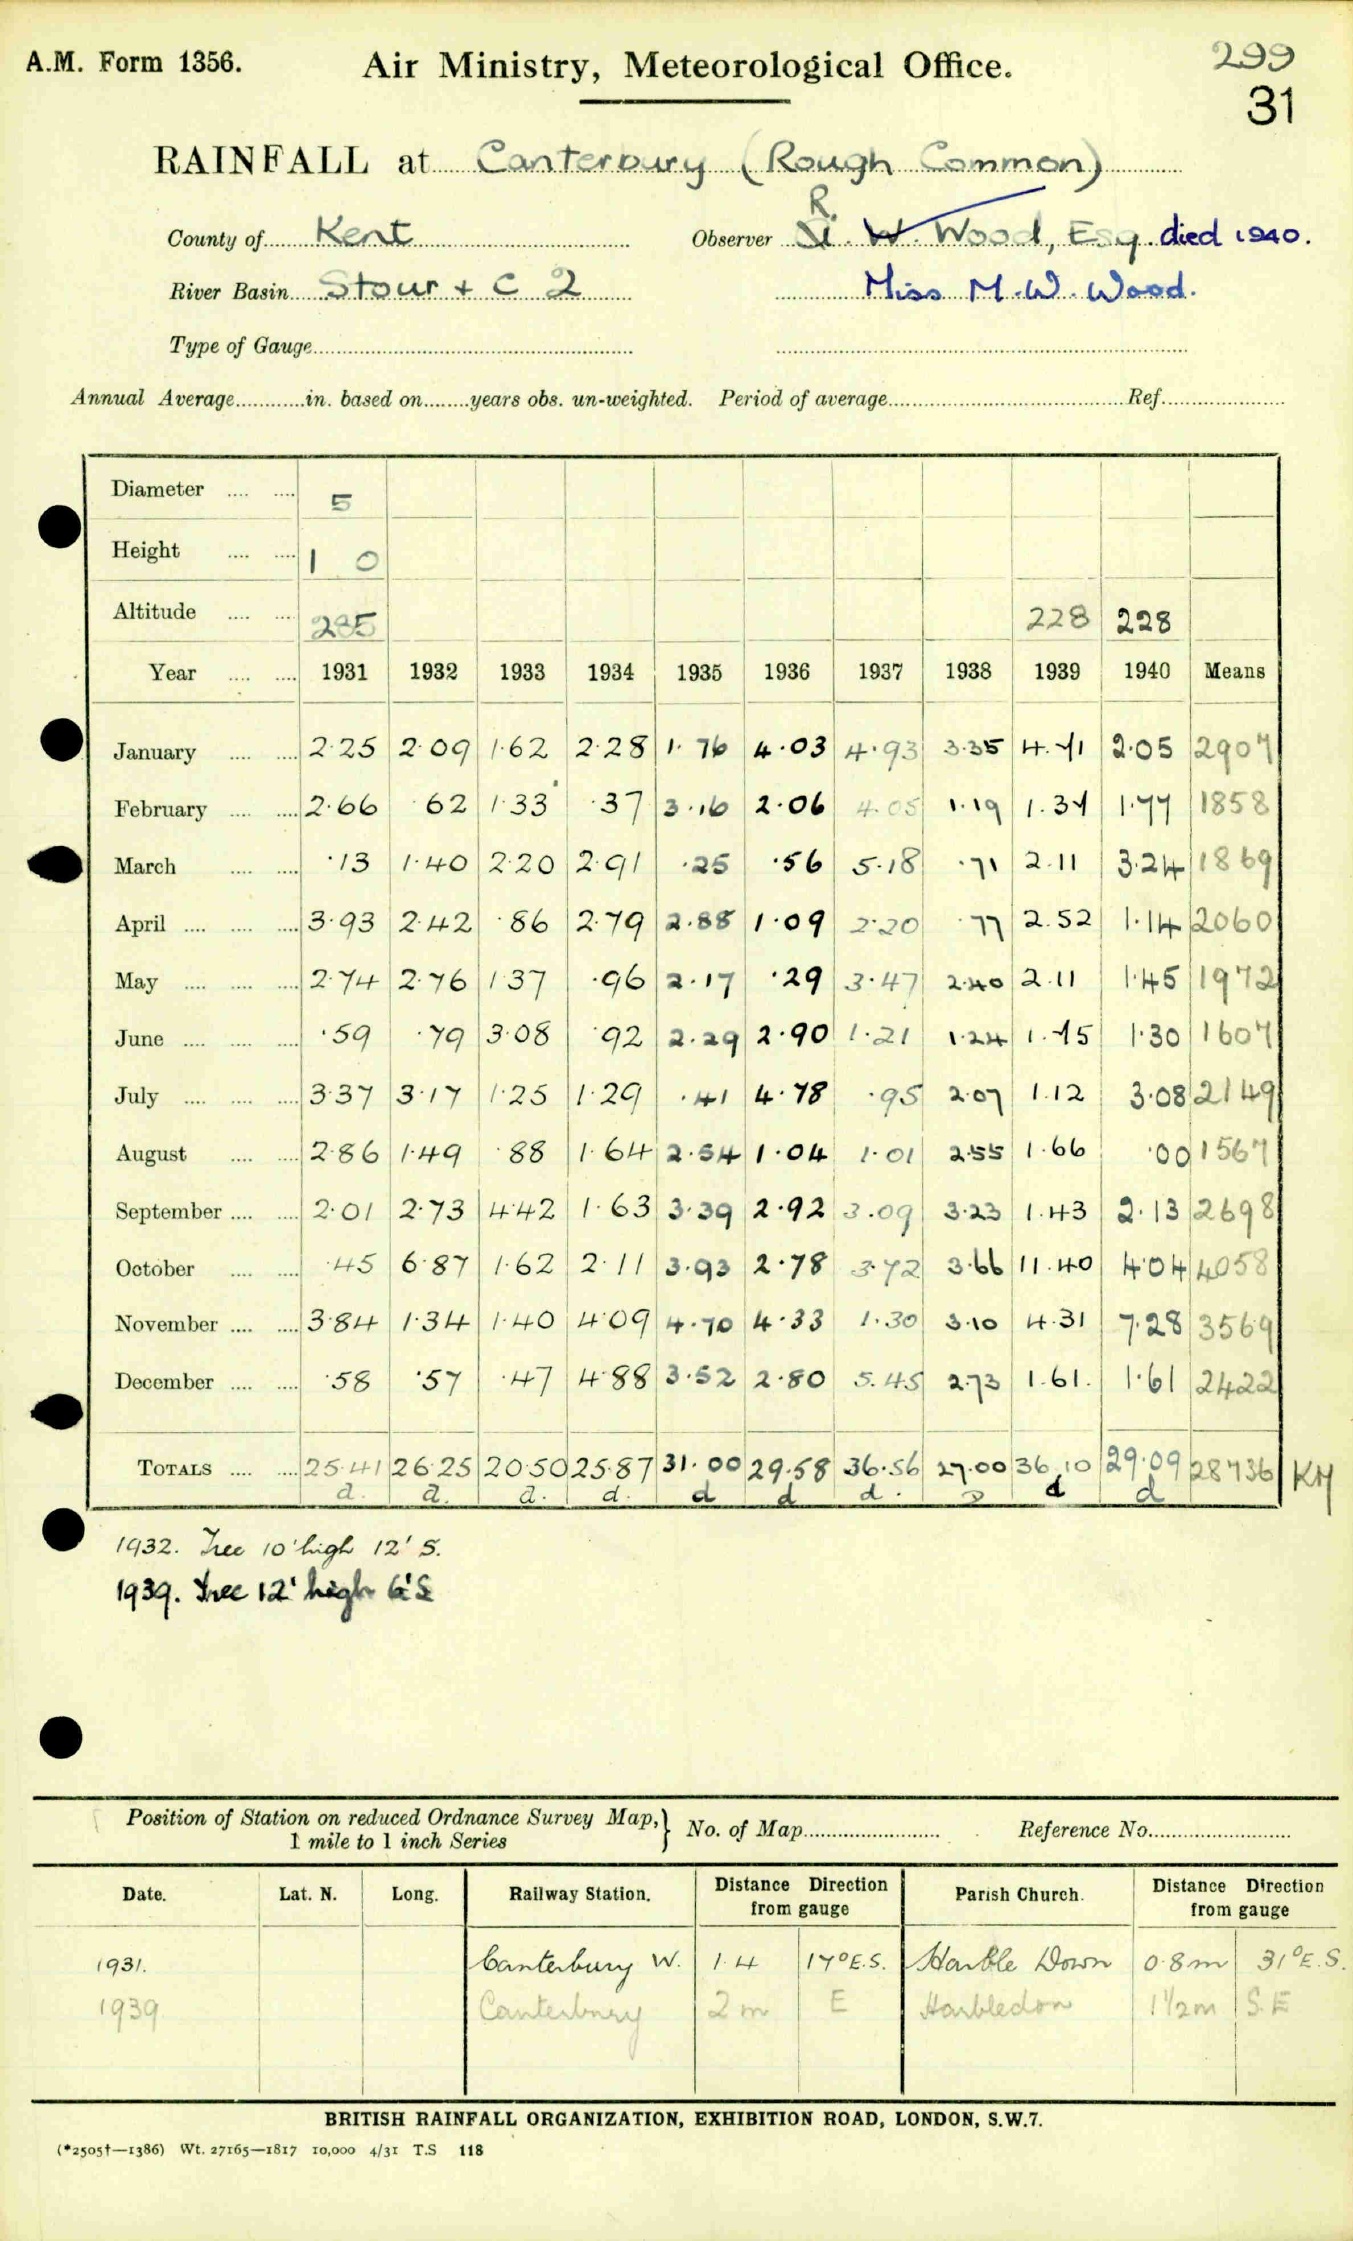 A.M. Form 1356.
Air Ministry, Meteorological Office.
299
31
RAINFALL at Canterbury (Rough Common)
County of Kent Observer R. W. Wood, Esq. died 1940.
River Basin Stour + C 2 Miss M.W. Wood.
Type of Gauge
Annual Average in. based on years obs. un-weighted. Period of average Ref.
Diameter 5
Height 1 0
Altitude 285 228 228
Year 1931 1932 1933 1934 1935 1936 1937 1938 1939 1940 Means
January 2.25 2.09 1.62 2.28 1.76 4.03 4.93 3.35 4.71 2.05 2907
February 2.66 .62 1.33 .37 3.16 2.06 4.05 1.19 1.37 1.77 1858
March .13 1.40 2.20 2.91 .25 .56 5.18 .71 2.11 3.24 1869
April 3.93 2.42 .86 2.79 2.88 1.09 2.20 .77 2.52 1.14 2060
May 2.74 2.76 1.37 .96 2.17 .29 3.47 2.40 2.11 1.45 1972
June .59 .79 3.08 .92 2.29 2.90 1.21 1.24 1.75 1.30 1607
July 3.37 3.17 1.25 1.29 .41 4.78 .95 2.07 1.12 3.08 2149
August 2.86 1.49 .88 1.64 2.54 1.04 1.01 2.55 1.66 .00 1567
September 2.01 2.73 4.42 1.63 3.39 2.92 3.09 3.23 1.43 2.13 2698
October .45 6.87 1.62 2.11 3.93 2.78 3.72 3.66 11.40 4.04 4058
November 3.84 1.34 1.40 4.09 4.70 4.33 1.30 3.10 4.31 7.28 3569
December .58 .57 .47 4.88 3.52 2.80 5.45 2.73 1.61 1.61 2422
TOTALS 25.41 26.25 20.50 25.87 31.00 29.58 36.56 27.00 36.10 29.09 28736 KM
d. d. d. d. d d d. D d d
1932. Tree 10' high 12' S.
1939. Tree 12' high 6' S
Position of Station on reduced Ordnance Survey Map,
1 mile to 1 inch Series } No. of Map Reference No.
Date. Lat. N. Long. Railway Station. Distance Direction from gauge Parish Church. Distance Direction from gauge
1931. Canterbury W. 1.4 17° E.S. Harble Down 0.8m 31° E.S.
1939 Canterbury 2m E Harbledon 1½m S.E
BRITISH RAINFALL ORGANIZATION, EXHIBITION ROAD, LONDON, S.W.7.
(*2505†—1386) Wt. 27165—1817 10,000 4/31 T.S 118